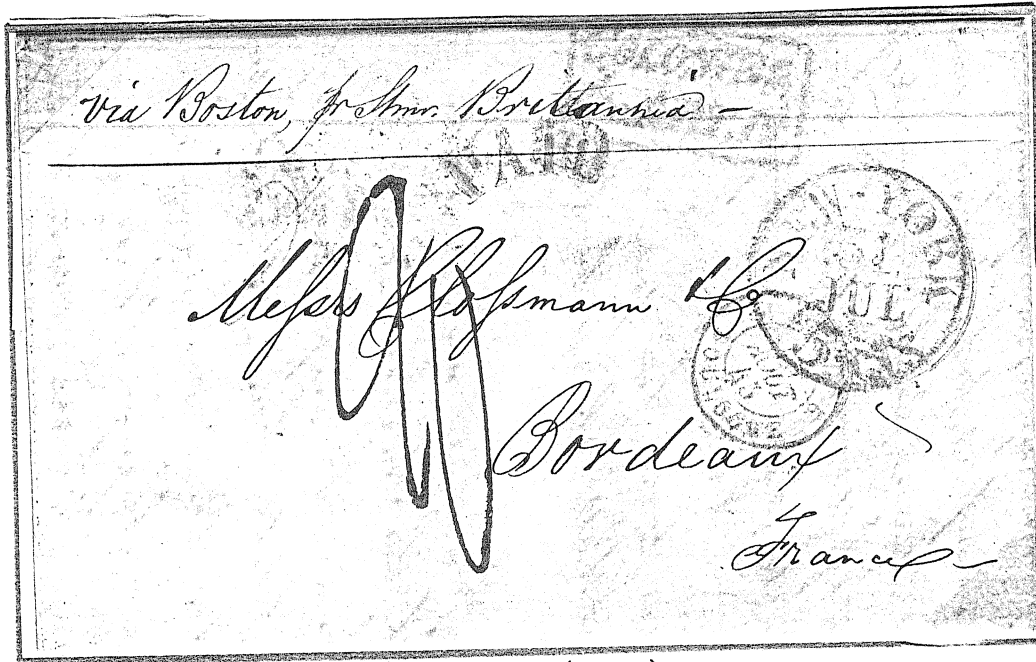 via Boston, pr Stmr. Brittannia –
PAID
NEW-YORK
JUL
Messrs Klossmann & Co
Bordeaux
France